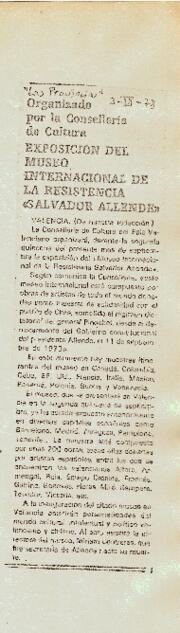 "Las Provincias" 3-IX-78
Organizado
por la Consellería
de Cultura
EXPOSICION DEL
MUSEO
INTERNACIONAL DE
LA RESISTENCIA
«SALVADOR ALLENDE»
VALENCIA. (De nuestra redacción.)
La Consellería de Cultura del País Va-
lenciano organizará, durante la segunda
quincena del presente mes de septiem-
bre la exposición del «Museo Internacio-
nal de la Resistencia Salvador Allende».
Según comunica la Consellería, este
museo internacional está compuesto por
obras de artistas de todo el mundo
como muestra de solidaridad por el
pueblo de Chile, sometido al régimen dic-
tatorial del general Pinochet, desde el de-
rrocamiento del Gobierno constitucional
del presidente Allende, el 11 de septiem-
bre de 1973».
En este momento hay muestras
del museo en Canadá, Colombia,
Cuba, EE. UU., Francia, Italia, México,
Panamá, Polonia, Suecia y Venezuela.
El museo, que se presentará en Valencia
en la segunda quincena de septiem-
bre, ya ha estado expuesto
en diversas capitales españolas como
Barcelona, Madrid, Zaragoza, Pamplona,
Tenerife... La muestra está compuesta
por unas 200 obras,
por artistas españoles, entre los que se
encuentran los valencianos Alfaro, Ar-
mengol,
A la inauguración del citado museo en
Valencia asistirán personalidades del
mundo cultural, intelectual y político va-
lenciano y chileno. Al acto asistirá la di-
rectora del museo, Miriam Contreras, que
fue secretaria de Allende hasta su muer-
te.